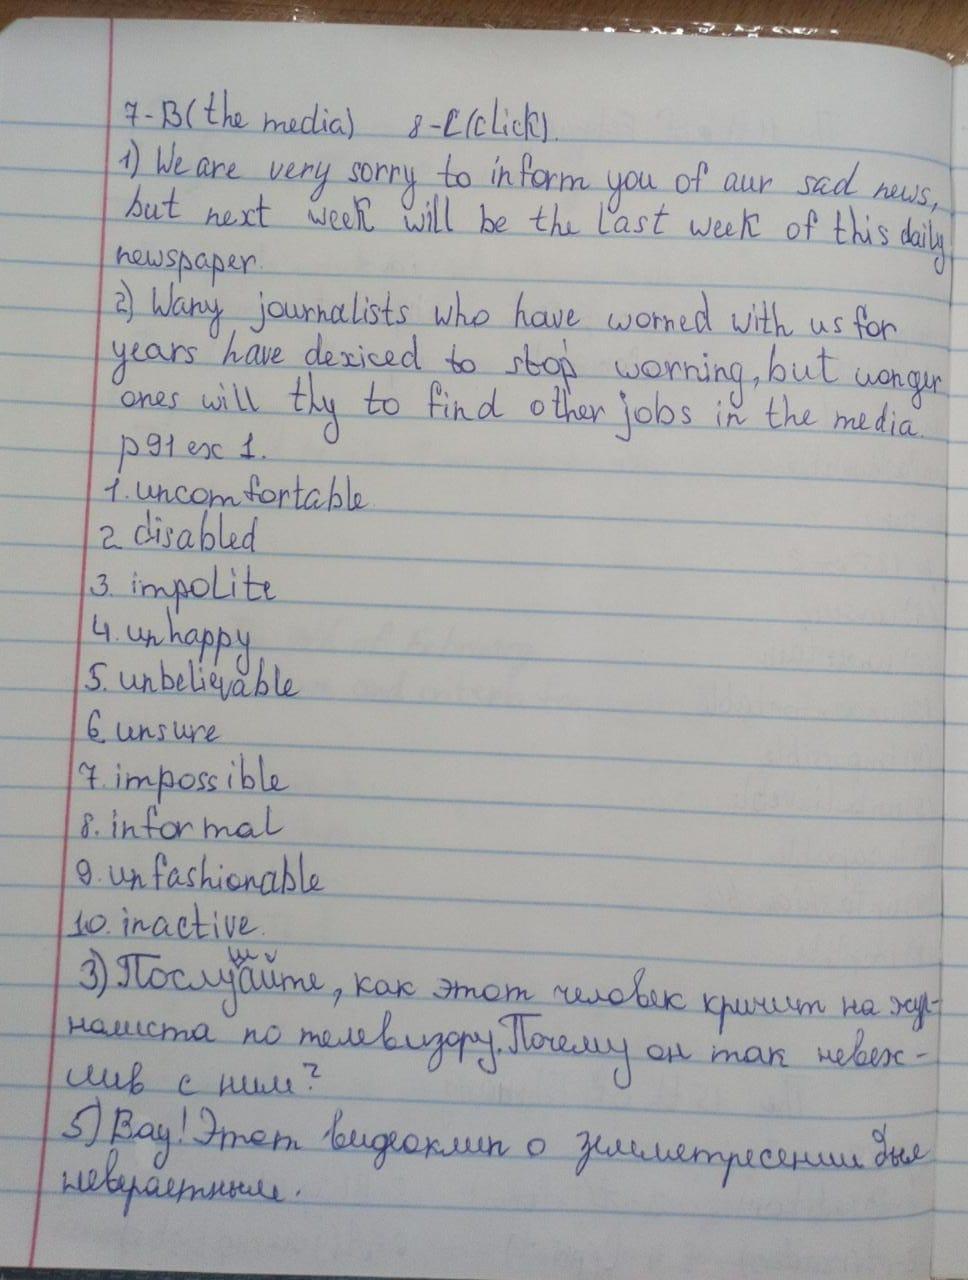 7-B(the media) 8-C(click).
1) We are very sorry to inform you of aur sad news,
but next week will be the last week of this daily
newspaper.
2) Wany journalists who have worned with us for
years have dexiced to stop worning, but uonger
ones will thy to find other jobs in the media.
p 91 ex 1.
1. uncomfortable
2 disabled
3. impolite
4. unhappy
5. unbelievable
6 unsure
7. impossible
8. informal
9. unfashionable
10. inactive.
3) Послушайте, как этот человек кричит на жур-
налиста по телевизору. Почему он так невеж-
лив с ним?
5) Вау! Этот видеоклип о землетресении был
невераетным.